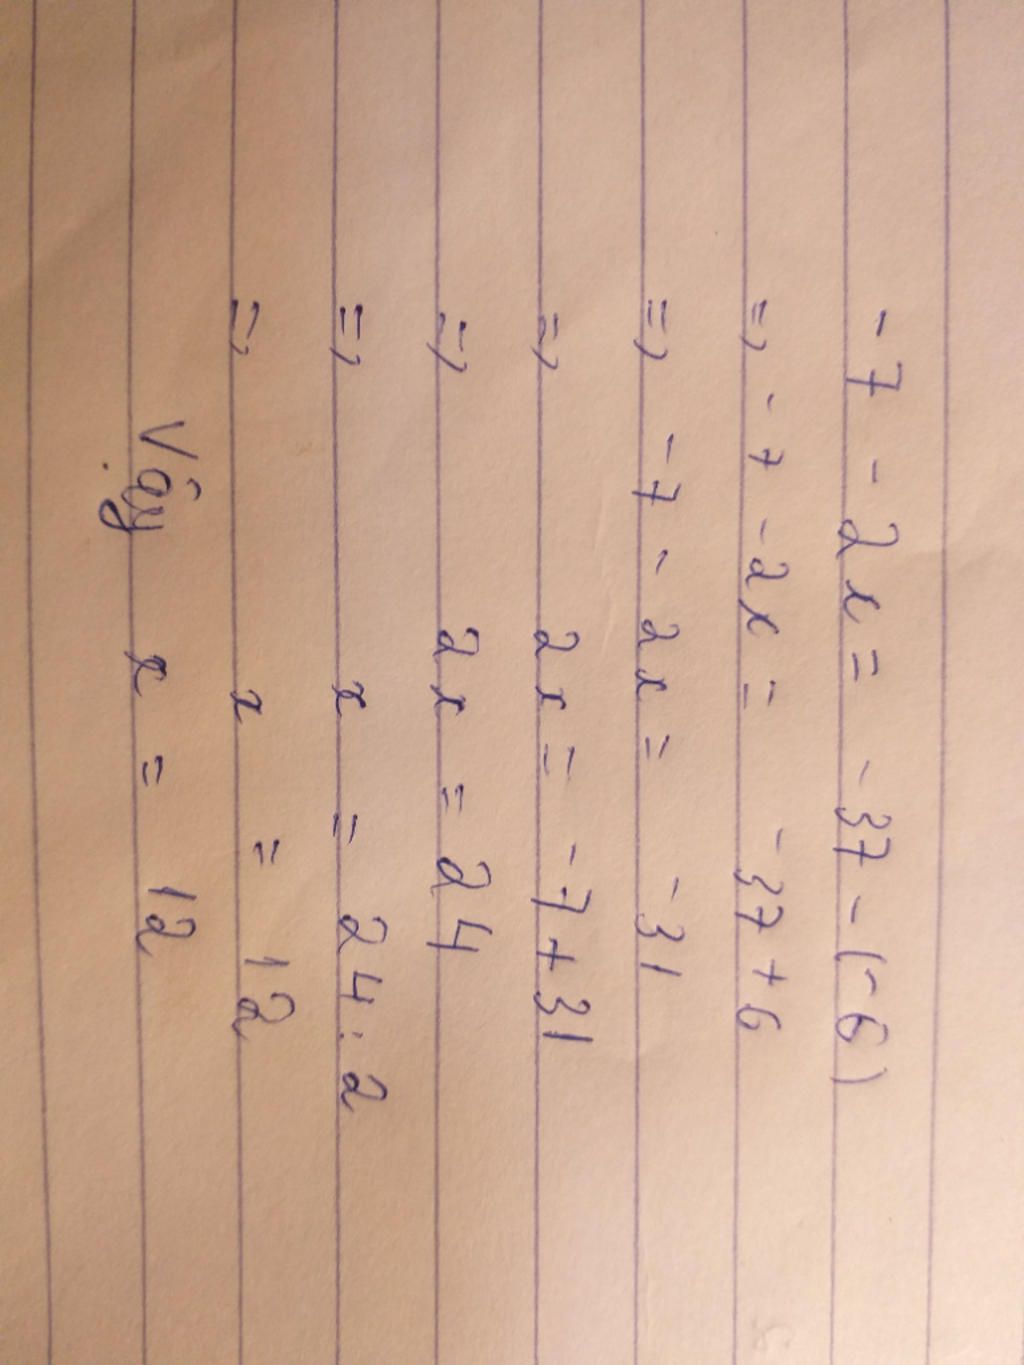 - 7 - 2x = - 37 - (- 6)
=> - 7 - 2x = - 37 + 6
=> - 7 - 2x = - 31
=> 2x = - 7 + 31
=> 2x = 24
=> x = 24 : 2
=> x = 12
Vậy x = 12